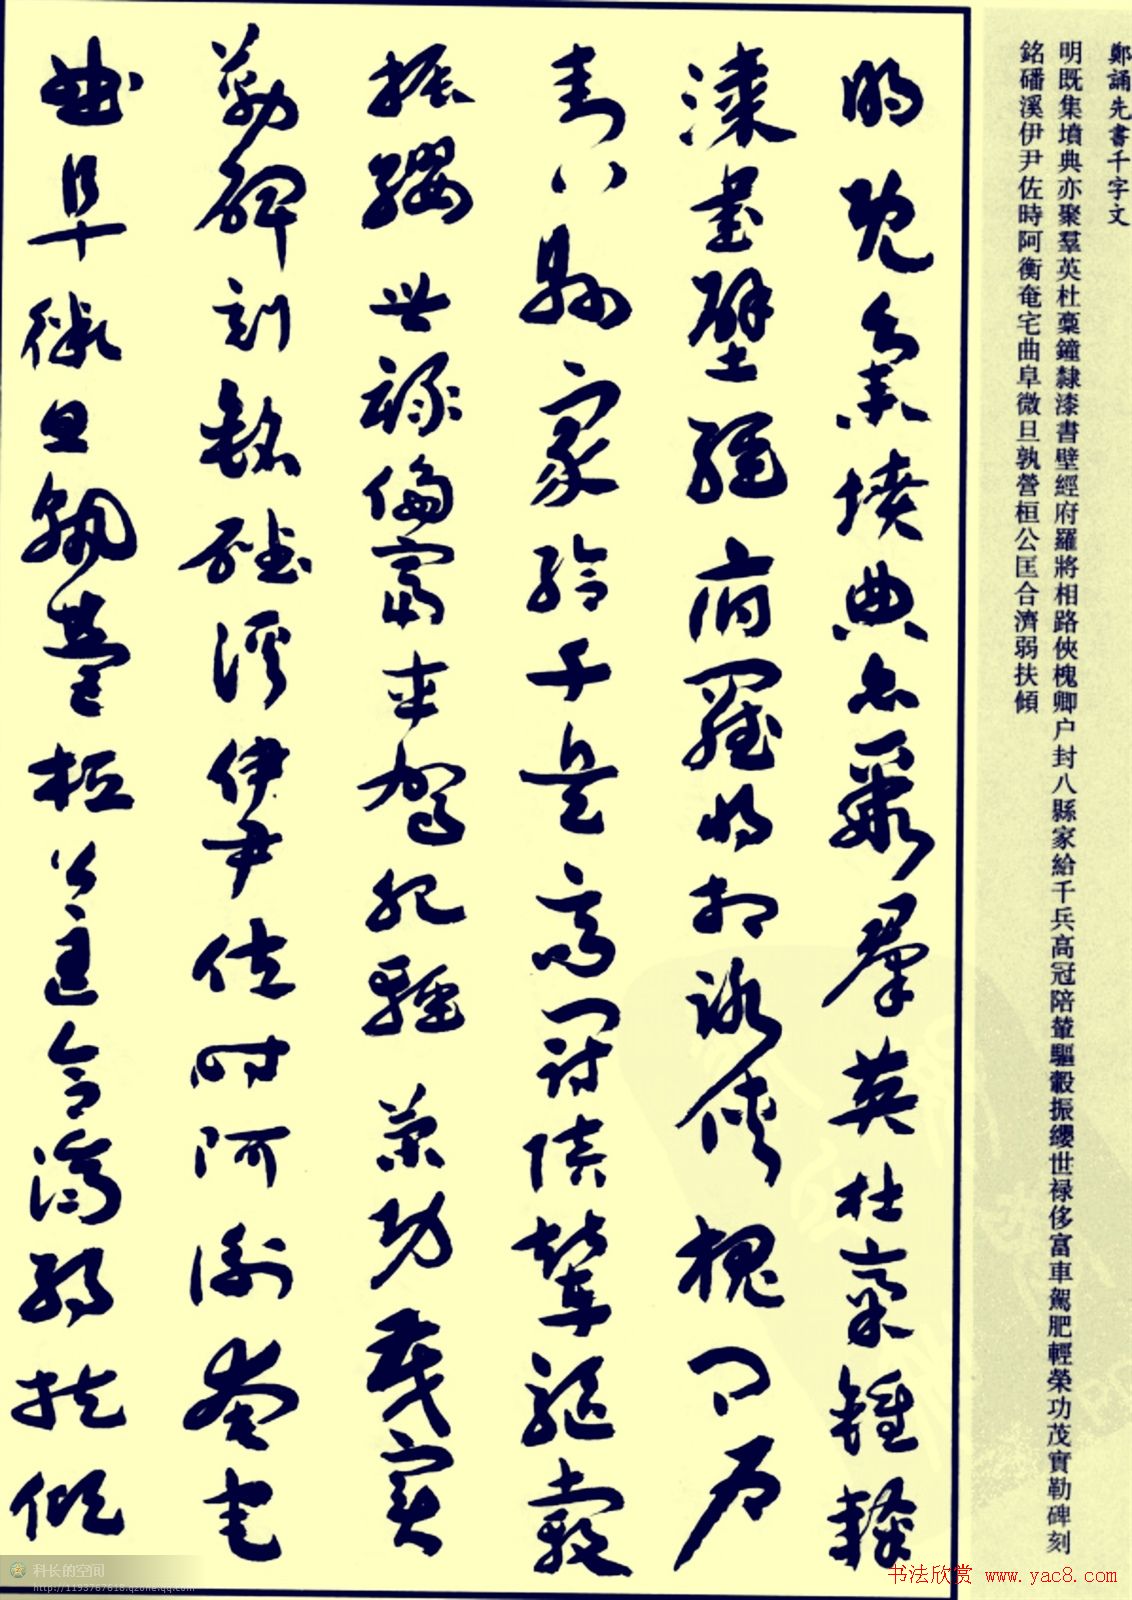 鄭誦先書千字文
明既集墳典亦聚羣英杜藁鐘隸漆書壁經府羅將相路俠槐卿户封八縣家給千兵高冠陪輦驅轂振纓世禄侈富車駕肥輕榮功茂實勒碑刻
銘磻溪伊尹佐時阿衡奄宅曲阜微旦孰營桓公匡合濟弱扶傾
明既集墳典亦聚羣英杜藁鍾隸
漆書壁經府羅將相路俠槐卿户
封八縣家給千兵高冠陪輦驅轂
振纓世禄侈富車駕肥輕榮功茂實
勒碑刻銘磻溪伊尹佐時阿衡奄宅
曲阜微旦孰營桓公匡合濟弱扶傾
科长的空间
书法欣赏 www.yac8.com